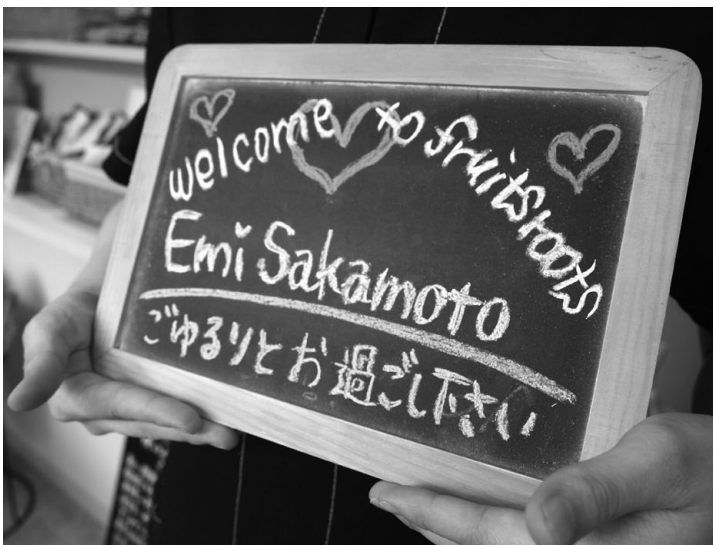 welcome to fruitsroots
Emi Sakamoto
ごゆるりとお過ごし下さい